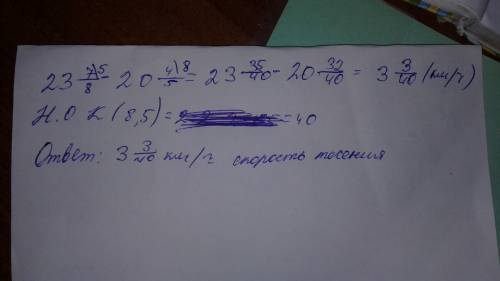 23 7\5/8 - 20 4\8/5 = 23 35/40 - 20 32/40 = 3 3/40 (км/ч)
Н.О К (8,5) = = 40
Ответ: 3 3/40 км/ч скорость течения